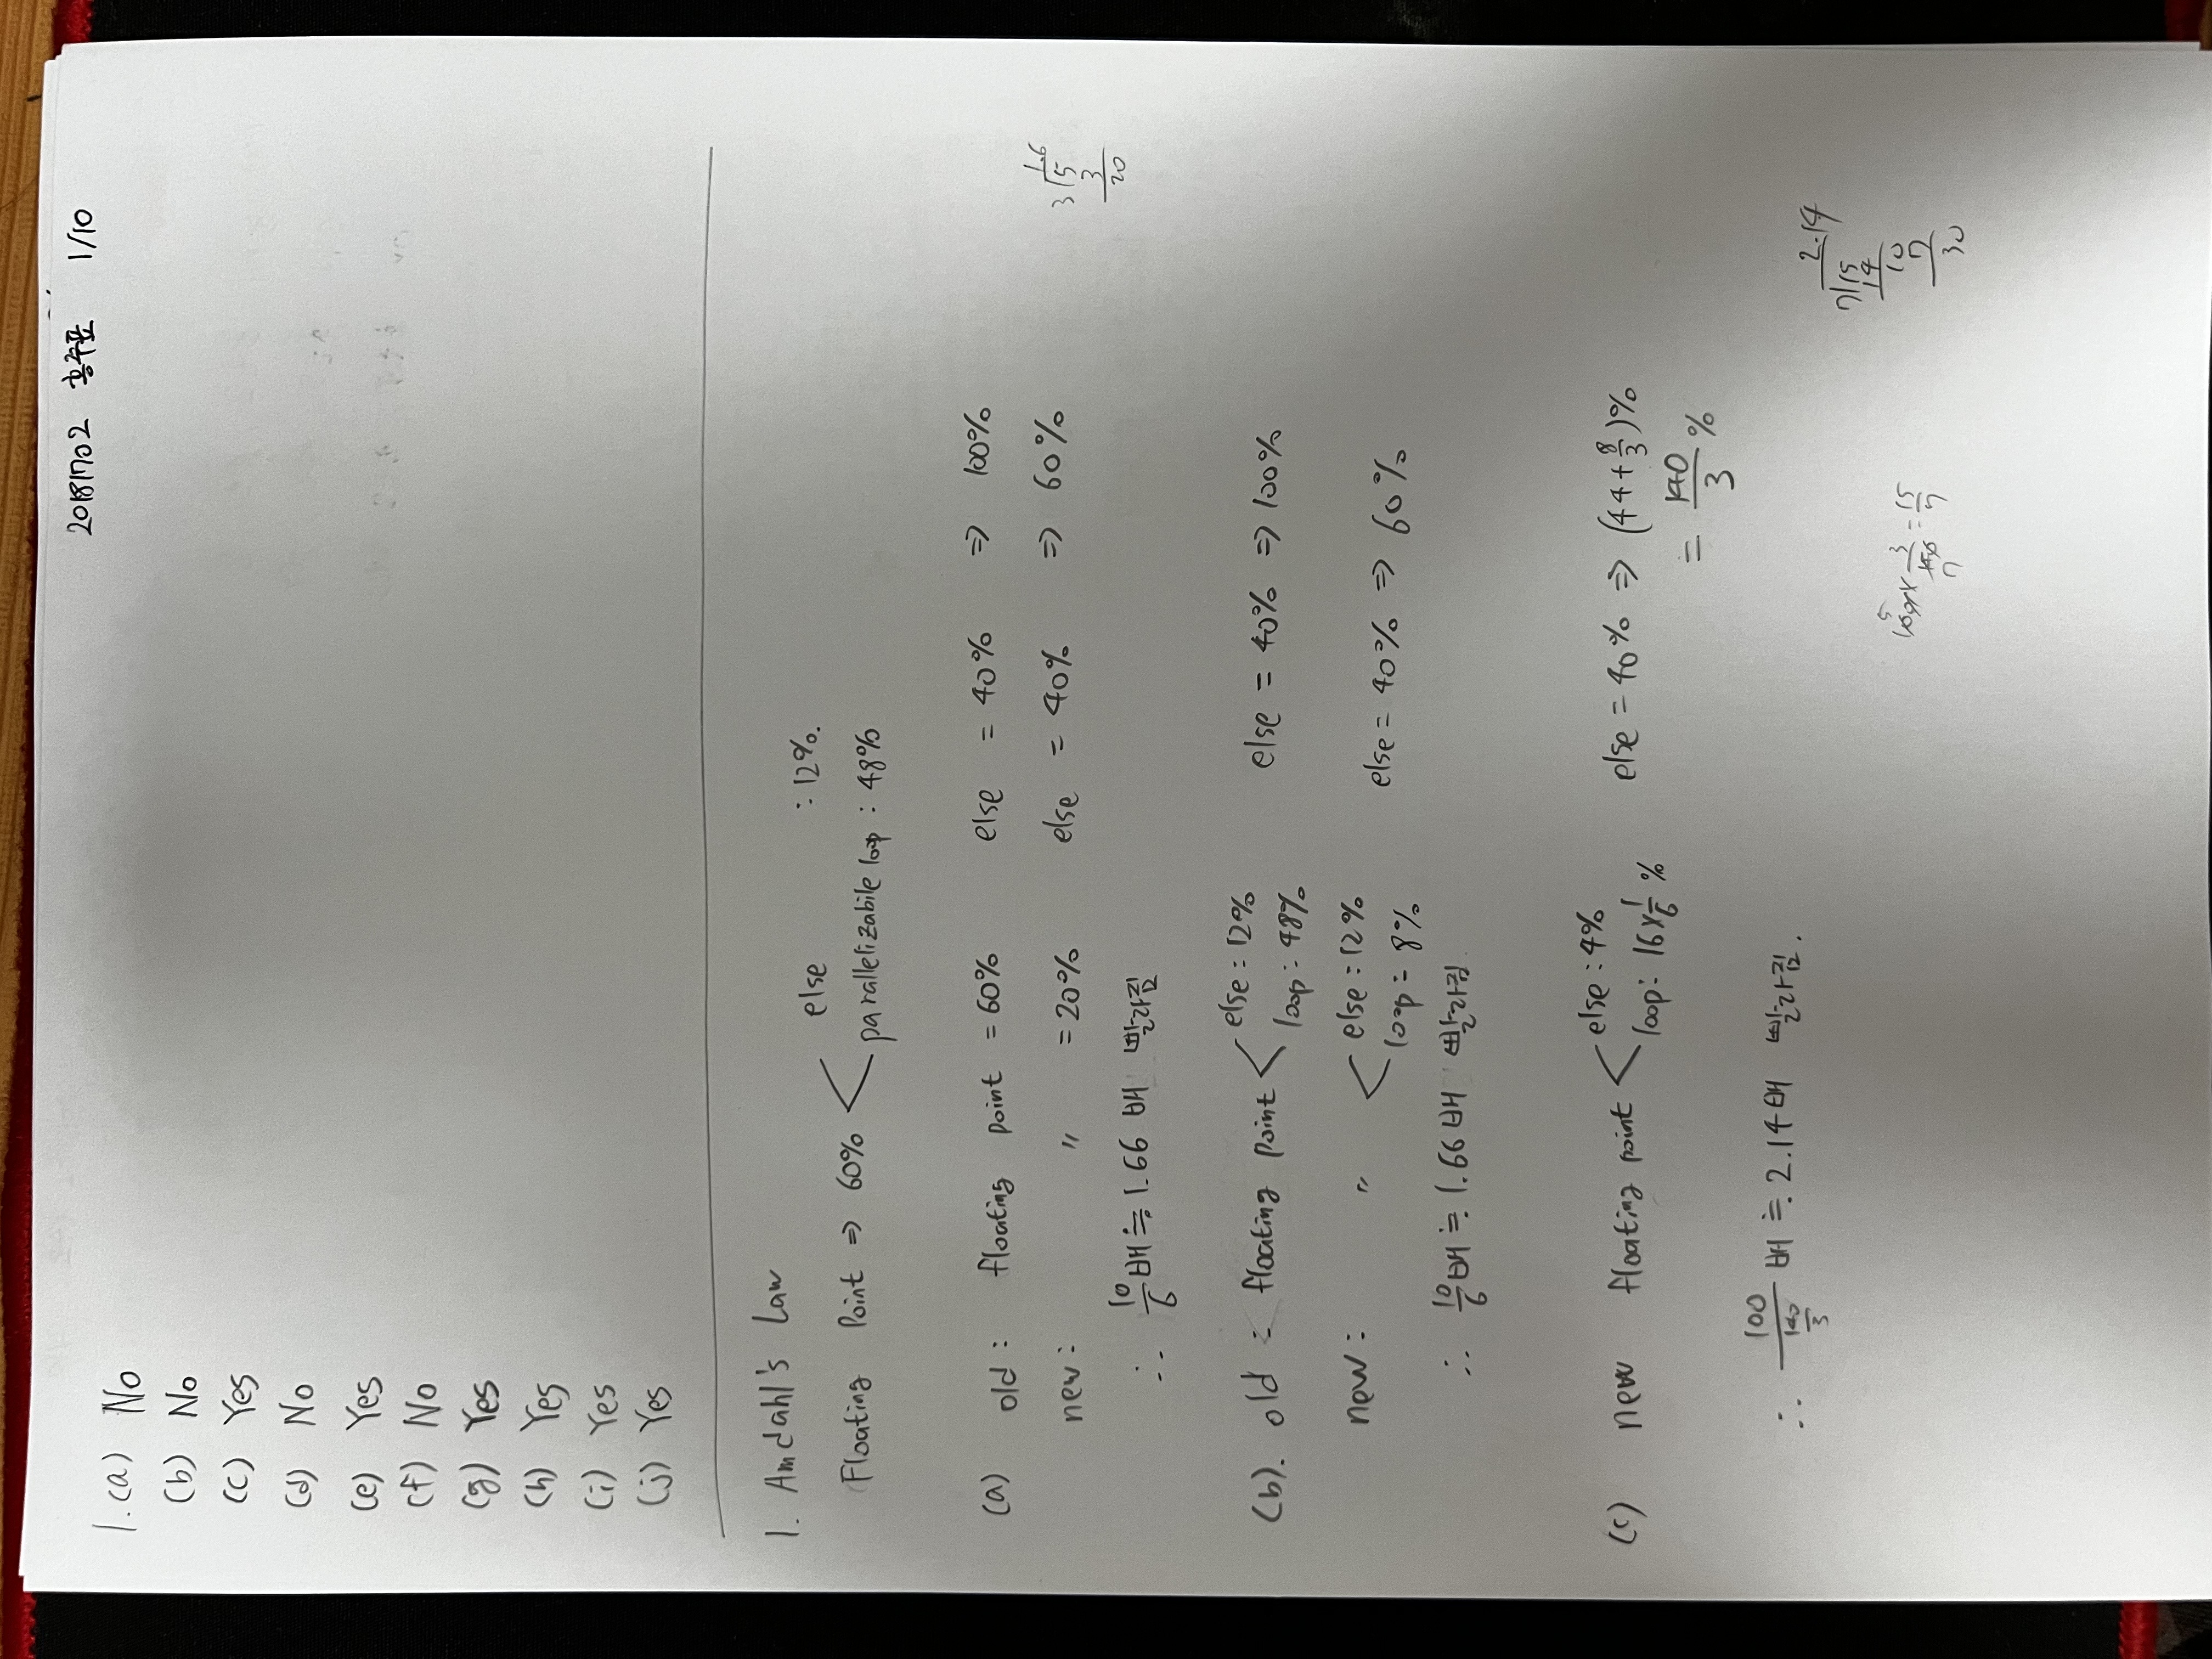 20181702 홍주표 1/10
1. (a) No
(b) No
(c) Yes
(d) No
(e) Yes
(f) No
(g) Yes
(h) Yes
(i) Yes
(j) Yes
1. Amdahl's Law
else : 12%.
Floating Point ⇒ 60%
parallelizabile loop : 48%
(a) old : floating point = 60% else = 40% ⇒ 100%
new : 〃 = 20% else = 40% ⇒ 60%
∴ 10/6 배 ≒ 1.66 배 빨라짐
1.6
3 5
3
20
(b). old : floating point else : 12% loop : 48% else = 40% ⇒ 100%
new : 〃 else : 12% loop = 8% else = 40% ⇒ 60%
∴ 10/6 배 ≒ 1.66 배 빨라짐.
(c) new floating point else : 4% loop : 16 × 1/6 % else = 40% ⇒ (44 + 8/3)%
= 140/3 %
∴ 100/(140/3) 배 ≒ 2.14 배 빨라짐.
2.14
7 15
14
10
7
30
5
100 × 3/140 = 15/7
7